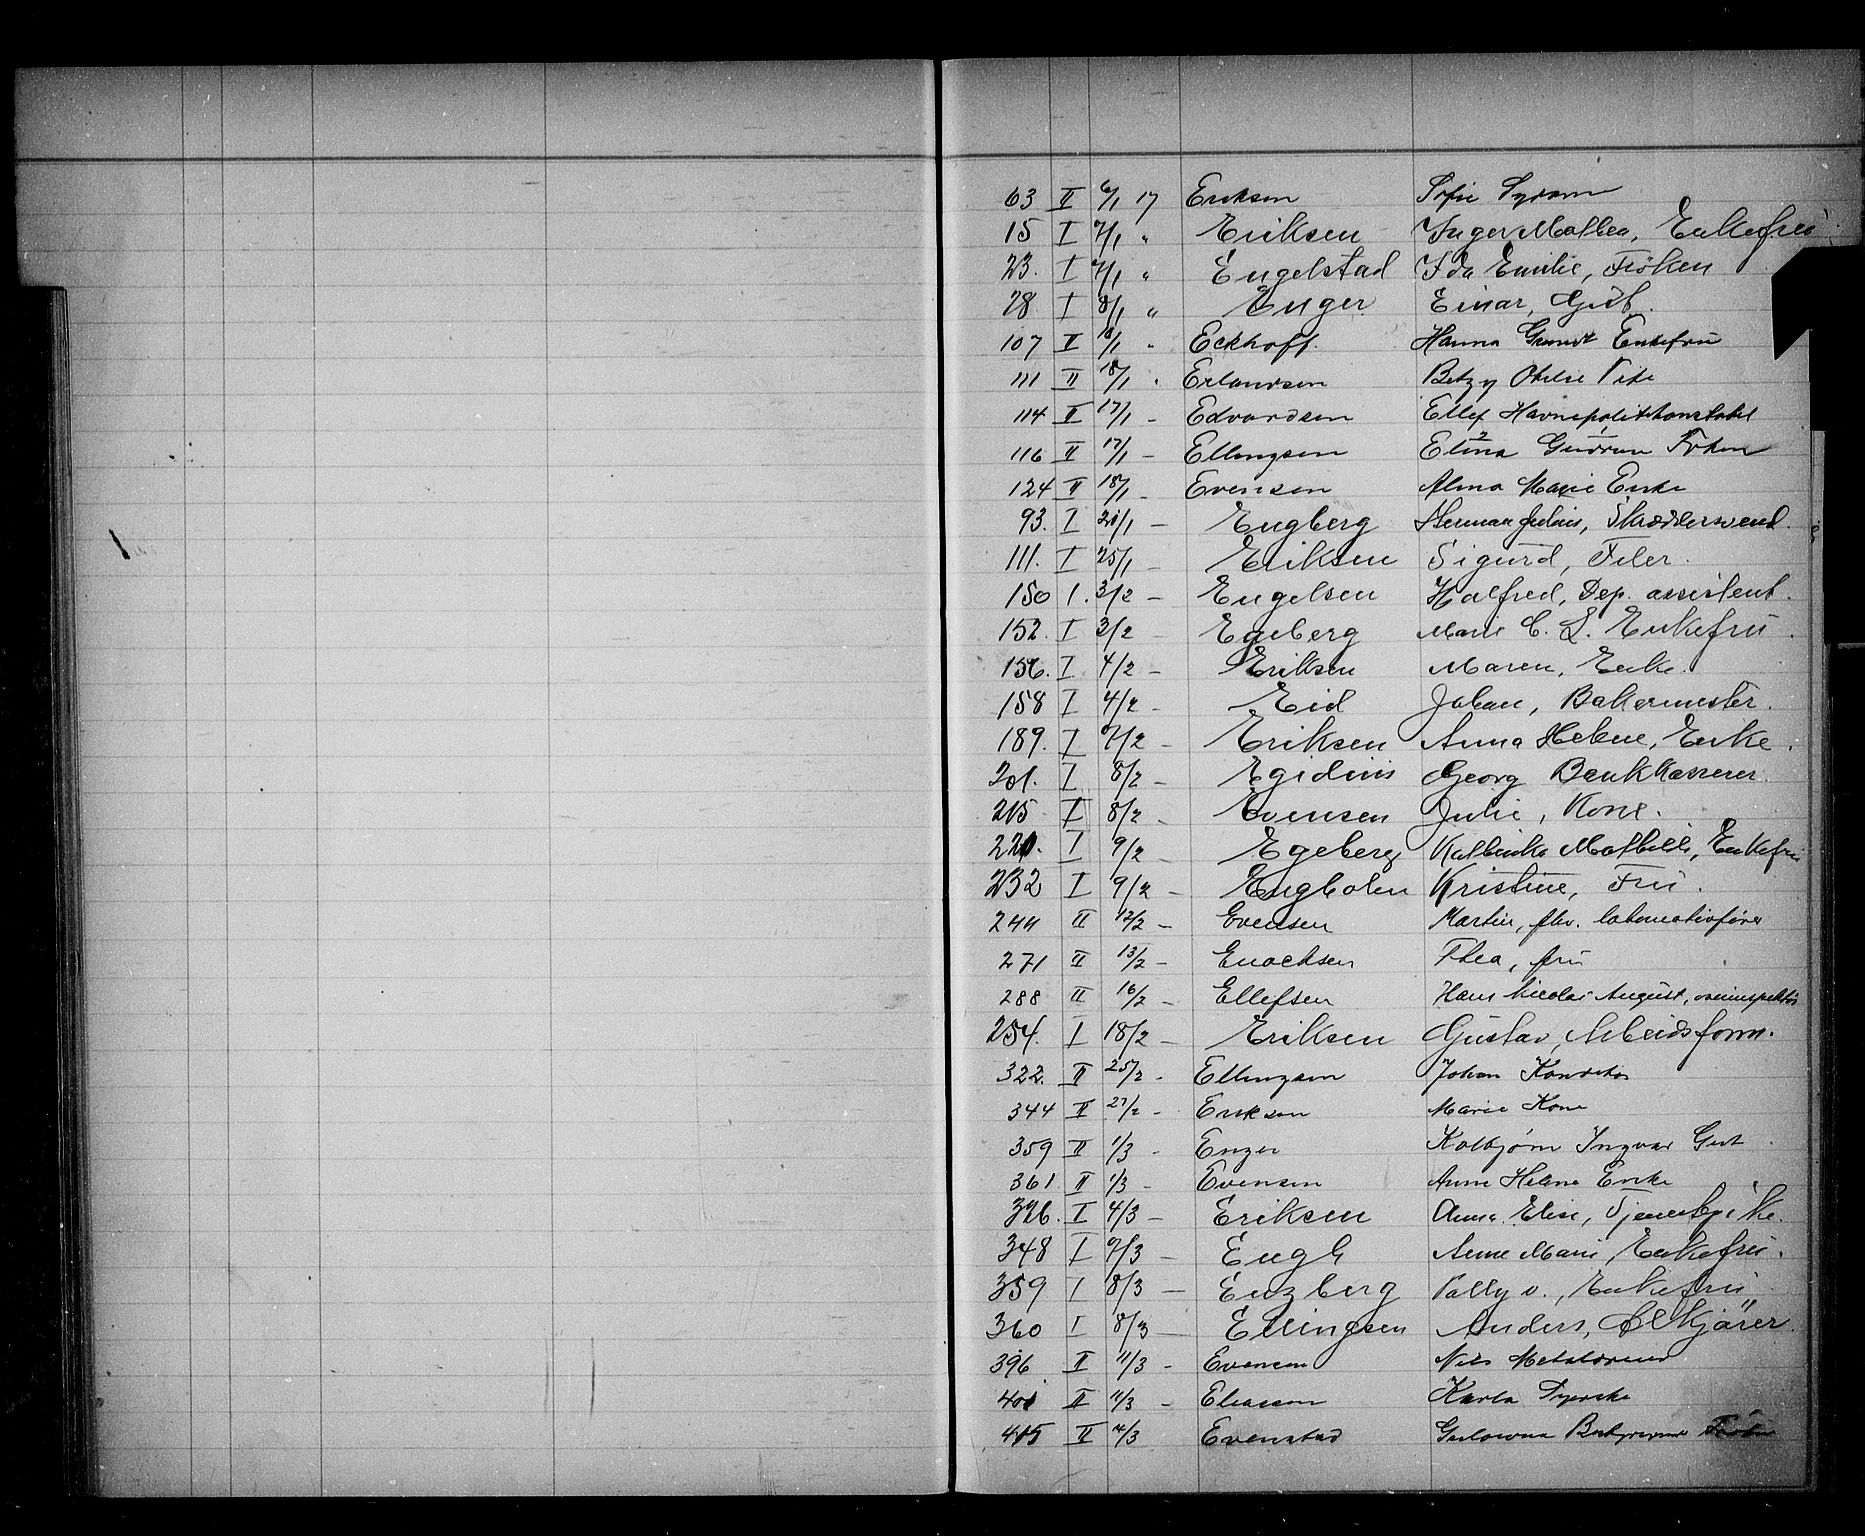 63 II 6/1 17 Eriksen Sofie
15 I 7/1 " Eriksen Inger Mathea, Enkefru
23. I 7/1 " Engelstad Ida Emilie, Fröken
28 I 8/1 " Enger Einar, Gut.
107 II 10/1 " Eckhoff. Hanna Enkefru
111 II 18/1 " Erlandsen Betzy Pike
114 II 17/1 - Edvardsen Ellef Havnepolitikonstabel
116 II 17/1 - Ellingsen Elina Gudrun Frøken
124 II 18/1 - Evensen Alma Marie Enke
93. I 20/1 - Engberg Herman Julius, Skræddersvend.
111. I 25/1 - Eriksen Sigurd, Filer.
150 I. 3/2 - Engelsen Halfred, Dep. assistent.
152. I 3/2 - Egeberg Marie C. L. Enkefru.
156. I 4/2 - Eriksen Maren, Enke.
158 I 4/2 - Eid Johan, Bakermester.
189. I 7/2 - Eriksen Anna Helene, Enke.
201. I 8/2 - Egidius Georg Bankkasserer.
215 I 8/2 - Evensen Julie, Kone.
221. I 9/2 - Egeberg Mathilde, Enkefru
232 I 9/2 - Engholm Kristine, Fru.
244 II 12/2 - Evensen Martin, fhv. lokomotivfører
271 II 13/2 - Enochsen Thea, fru
288 II 16/2 - Ellefsen Hans Nicolai August,
254. I 18/2 - Eriksen Gustav, Arbeidsform.
322. II 25/2 - Ellingsen Johan Konditor
344 II 27/2 - Eriksen Marie Kone
359 II 1/3 - Enger Kolbjørn Ingvar Gut
361 II 1/3 - Evensen Anne Helene Enke
326. I 4/3 - Eriksen Anna Elise, Tjenestepike.
348 I 7/3 - Engh Anne Marie, Enkefru.
359 I 8/3 - Enzberg Pally v., Enkefru
360 I 8/3 - Ellingsen Anders, Ølkjörer.
396 II 11/3 - Evensen Nils
401 II 11/3 - Eliassen Karla Syerske
415 II 14/3 Evenstad Frøken